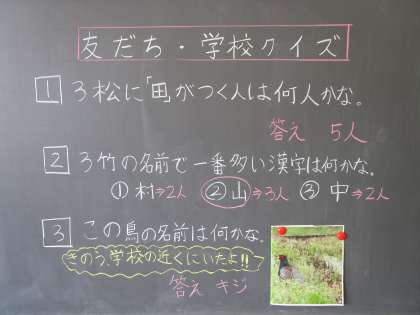 友だち・学校クイズ
1 3松に「田」がつく人は何人かな。
答え 5人
2 3竹の名前で一番多い漢字は何かな。
①村⇒2人 ②山⇒3人 ③中⇒2人
3 この鳥の名前は何かな。
きのう、学校の近くにいたよ!!
答え キジ